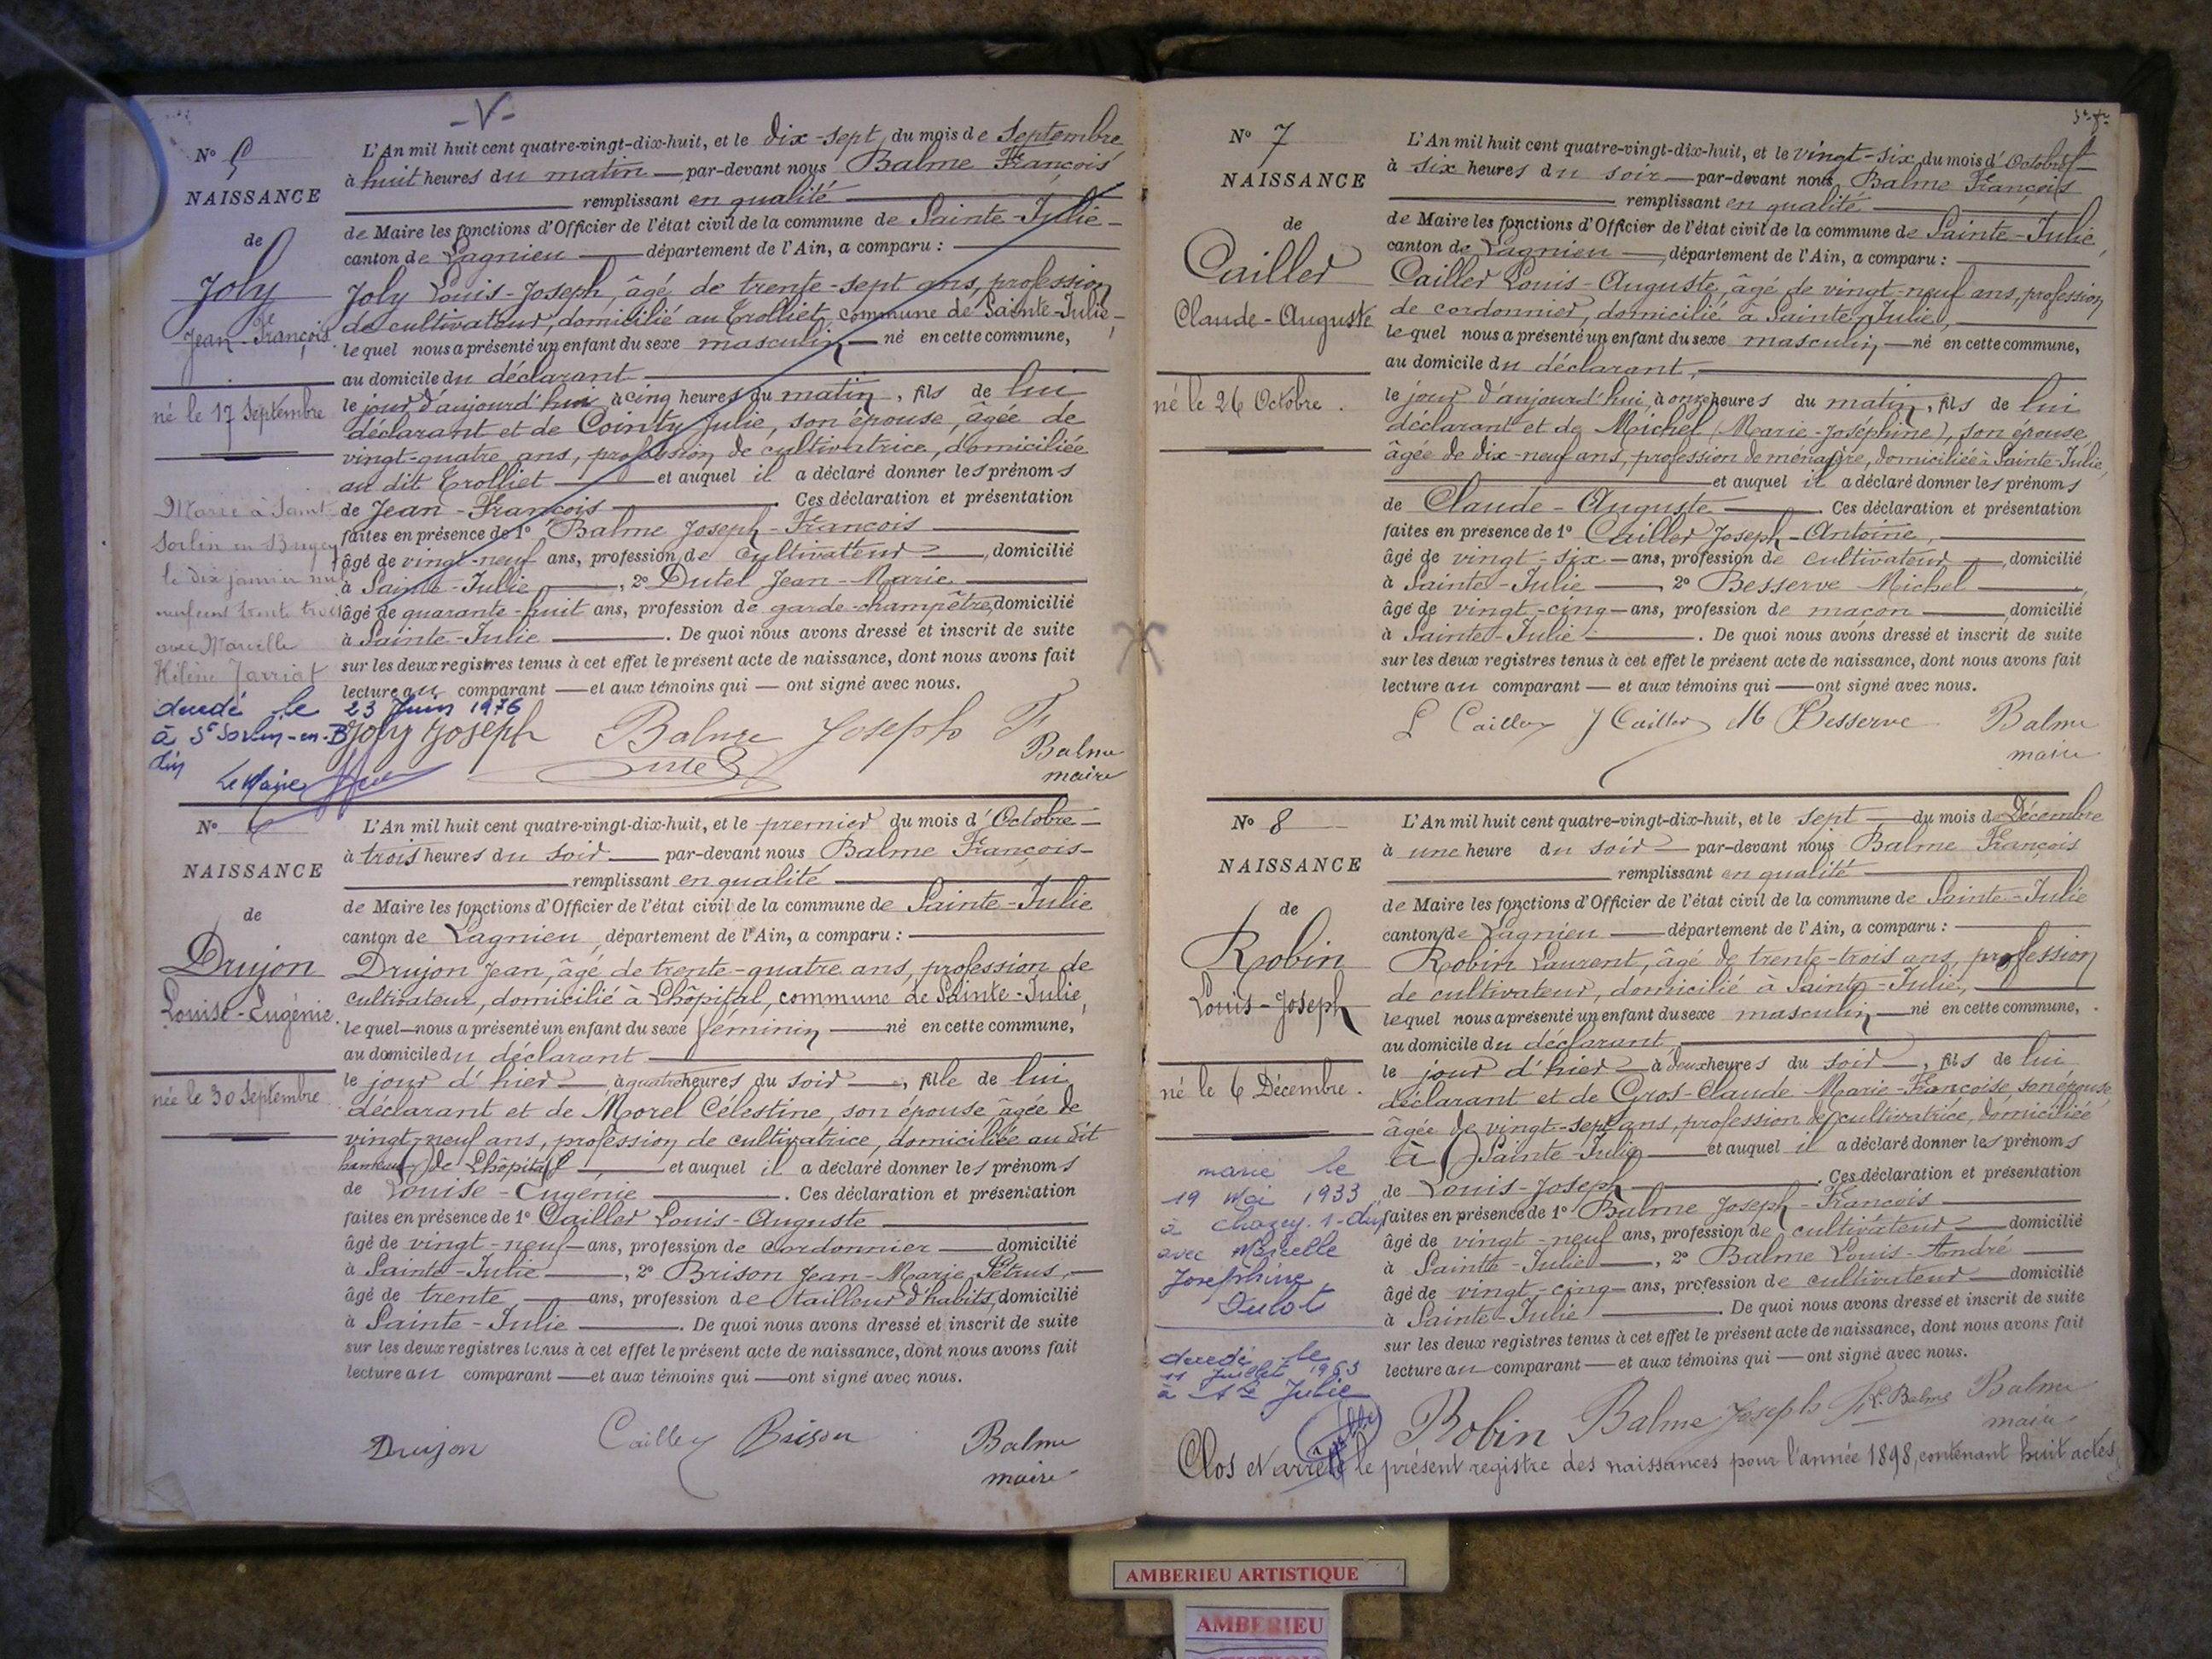 -V-
N° 5
NAISSANCE
de
Joly
Jean-François
né le 17 Septembre
Marié à Saint
Sorlin en Bugey
le dix janvier mil
neuf cent trente trois
avec Marcelle
Hélène Jarriat
décédé le 23 Juin 1976
à St Sorlin-en-B
Le Maire
L'An mil huit cent quatre-vingt-dix-huit, et le dix-sept du mois de Septembre
à huit heures du matin — par-devant nous Balme François
remplissant en qualité
de Maire les fonctions d'Officier de l'état civil de la commune de Sainte-Julie
canton de Lagnieu — département de l'Ain, a comparu :
Joly Louis-Joseph, âgé de trente-sept ans, profession
de cultivateur, domicilié au Trolliet, commune de Sainte-Julie,
lequel nous a présenté un enfant du sexe masculin — né en cette commune,
au domicile du déclarant
le jour d'aujourd'hui à cinq heures du matin, fils de lui
déclarant et de Cointy Julie, son épouse, âgée de
vingt-quatre ans, profession de cultivatrice, domiciliée
au dit Trolliet — et auquel il a déclaré donner les prénoms
de Jean-François — . Ces déclaration et présentation
faites en présence de 1° Balme Joseph-François
âgé de vingt-neuf ans, profession de cultivateur —, domicilié
à Sainte-Julie —, 2° Dutel Jean-Marie
âgé de quarante-huit ans, profession de garde-champêtre, domicilié
à Sainte-Julie — . De quoi nous avons dressé et inscrit de suite
sur les deux registres tenus à cet effet le présent acte de naissance, dont nous avons fait
lecture au comparant — et aux témoins qui — ont signé avec nous.
Joly Joseph Balme Joseph F
Dutel Balme
maire
N° 6
NAISSANCE
de
Drujon
Louise-Eugénie
née le 30 Septembre
L'An mil huit cent quatre-vingt-dix-huit, et le premier du mois d'Octobre
à trois heures du soir — par-devant nous Balme François
remplissant en qualité
de Maire les fonctions d'Officier de l'état civil de la commune de Sainte-Julie
canton de Lagnieu, département de l'Ain, a comparu :
Drujon Jean, âgé de trente-quatre ans, profession de
cultivateur, domicilié à Lhôpital, commune de Sainte-Julie,
lequel — nous a présenté un enfant du sexe féminin — né en cette commune,
au domicile du déclarant
le jour d'hier — à quatre heures du soir —, fille de lui
déclarant et de Morel Célestine, son épouse, âgée de
vingt-neuf ans, profession de cultivatrice, domiciliée au dit
hameau de Lhôpital — et auquel il a déclaré donner les prénoms
de Louise-Eugénie — . Ces déclaration et présentation
faites en présence de 1° Cailler Louis-Auguste
âgé de vingt-neuf — ans, profession de cordonnier — domicilié
à Sainte-Julie —, 2° Brison Jean-Marie Pétrus,
âgé de trente — ans, profession de tailleur d'habits, domicilié
à Sainte-Julie — . De quoi nous avons dressé et inscrit de suite
sur les deux registres tenus à cet effet le présent acte de naissance, dont nous avons fait
lecture au comparant — et aux témoins qui — ont signé avec nous.
Drujon Cailler Brison Balme
maire
N° 7
NAISSANCE
de
Cailler
Claude-Auguste
né le 26 Octobre.
L'An mil huit cent quatre-vingt-dix-huit, et le vingt-six du mois d'Octobre
à six heures du soir — par-devant nous Balme François
remplissant en qualité
de Maire les fonctions d'Officier de l'état civil de la commune de Sainte-Julie,
canton de Lagnieu — département de l'Ain, a comparu :
Cailler Louis-Auguste, âgé de vingt-neuf ans, profession
de cordonnier, domicilié à Sainte-Julie,
lequel nous a présenté un enfant du sexe masculin — né en cette commune,
au domicile du déclarant,
le jour d'aujourd'hui, à onze heures du matin, fils de lui
déclarant et de Michel (Marie-Joséphine), son épouse,
âgée de dix-neuf ans, profession de ménagère, domiciliée à Sainte-Julie,
et auquel il a déclaré donner les prénoms
de Claude-Auguste — . Ces déclaration et présentation
faites en présence de 1° Cailler Joseph-Antoine,
âgé de vingt-six — ans, profession de cultivateur —, domicilié
à Sainte-Julie — 2° Besserve Michel —,
âgé de vingt-cinq — ans, profession de maçon — domicilié
à Sainte-Julie — . De quoi nous avons dressé et inscrit de suite
sur les deux registres tenus à cet effet le présent acte de naissance, dont nous avons fait
lecture au comparant — et aux témoins qui — ont signé avec nous.
L Cailler J Cailler M Besserve Balme
maire
N° 8
NAISSANCE
de
Robin
Louis-Joseph
né le 6 Décembre.
marié le
19 Mai 1933
à Chazey-s-Ain
avec Marcelle
Joséphine
Dulot
décédé le
11 Juillet 1963
à Ste Julie
L'An mil huit cent quatre-vingt-dix-huit, et le sept — du mois de Décembre
à une heure du soir — par-devant nous Balme François
remplissant en qualité
de Maire les fonctions d'Officier de l'état civil de la commune de Sainte-Julie
canton de Lagnieu — département de l'Ain, a comparu :
Robin Laurent, âgé de trente-trois ans, profession
de cultivateur, domicilié à Sainte-Julie,
lequel nous a présenté un enfant du sexe masculin — né en cette commune,
au domicile du déclarant,
le jour d'hier — à deux heures du soir —, fils de lui
déclarant et de Gros-Claude Marie-Françoise, son épouse
âgée de vingt-sept ans, profession de cultivatrice, domiciliée
à Sainte-Julie — et auquel il a déclaré donner les prénoms
de Louis-Joseph — . Ces déclaration et présentation
faites en présence de 1° Balme Joseph-François
âgé de vingt-neuf ans, profession de cultivateur — domicilié
à Sainte-Julie —, 2° Balme Louis-André
âgé de vingt-cinq — ans, profession de cultivateur — domicilié
à Sainte-Julie — . De quoi nous avons dressé et inscrit de suite
sur les deux registres tenus à cet effet le présent acte de naissance, dont nous avons fait
lecture au comparant — et aux témoins qui — ont signé avec nous.
Robin Balme Joseph F L. Balme Balme
maire
Clos et arrêté le présent registre des naissances pour l'année 1898, contenant huit actes
AMBERIEU ARTISTIQUE
AMBERIEU